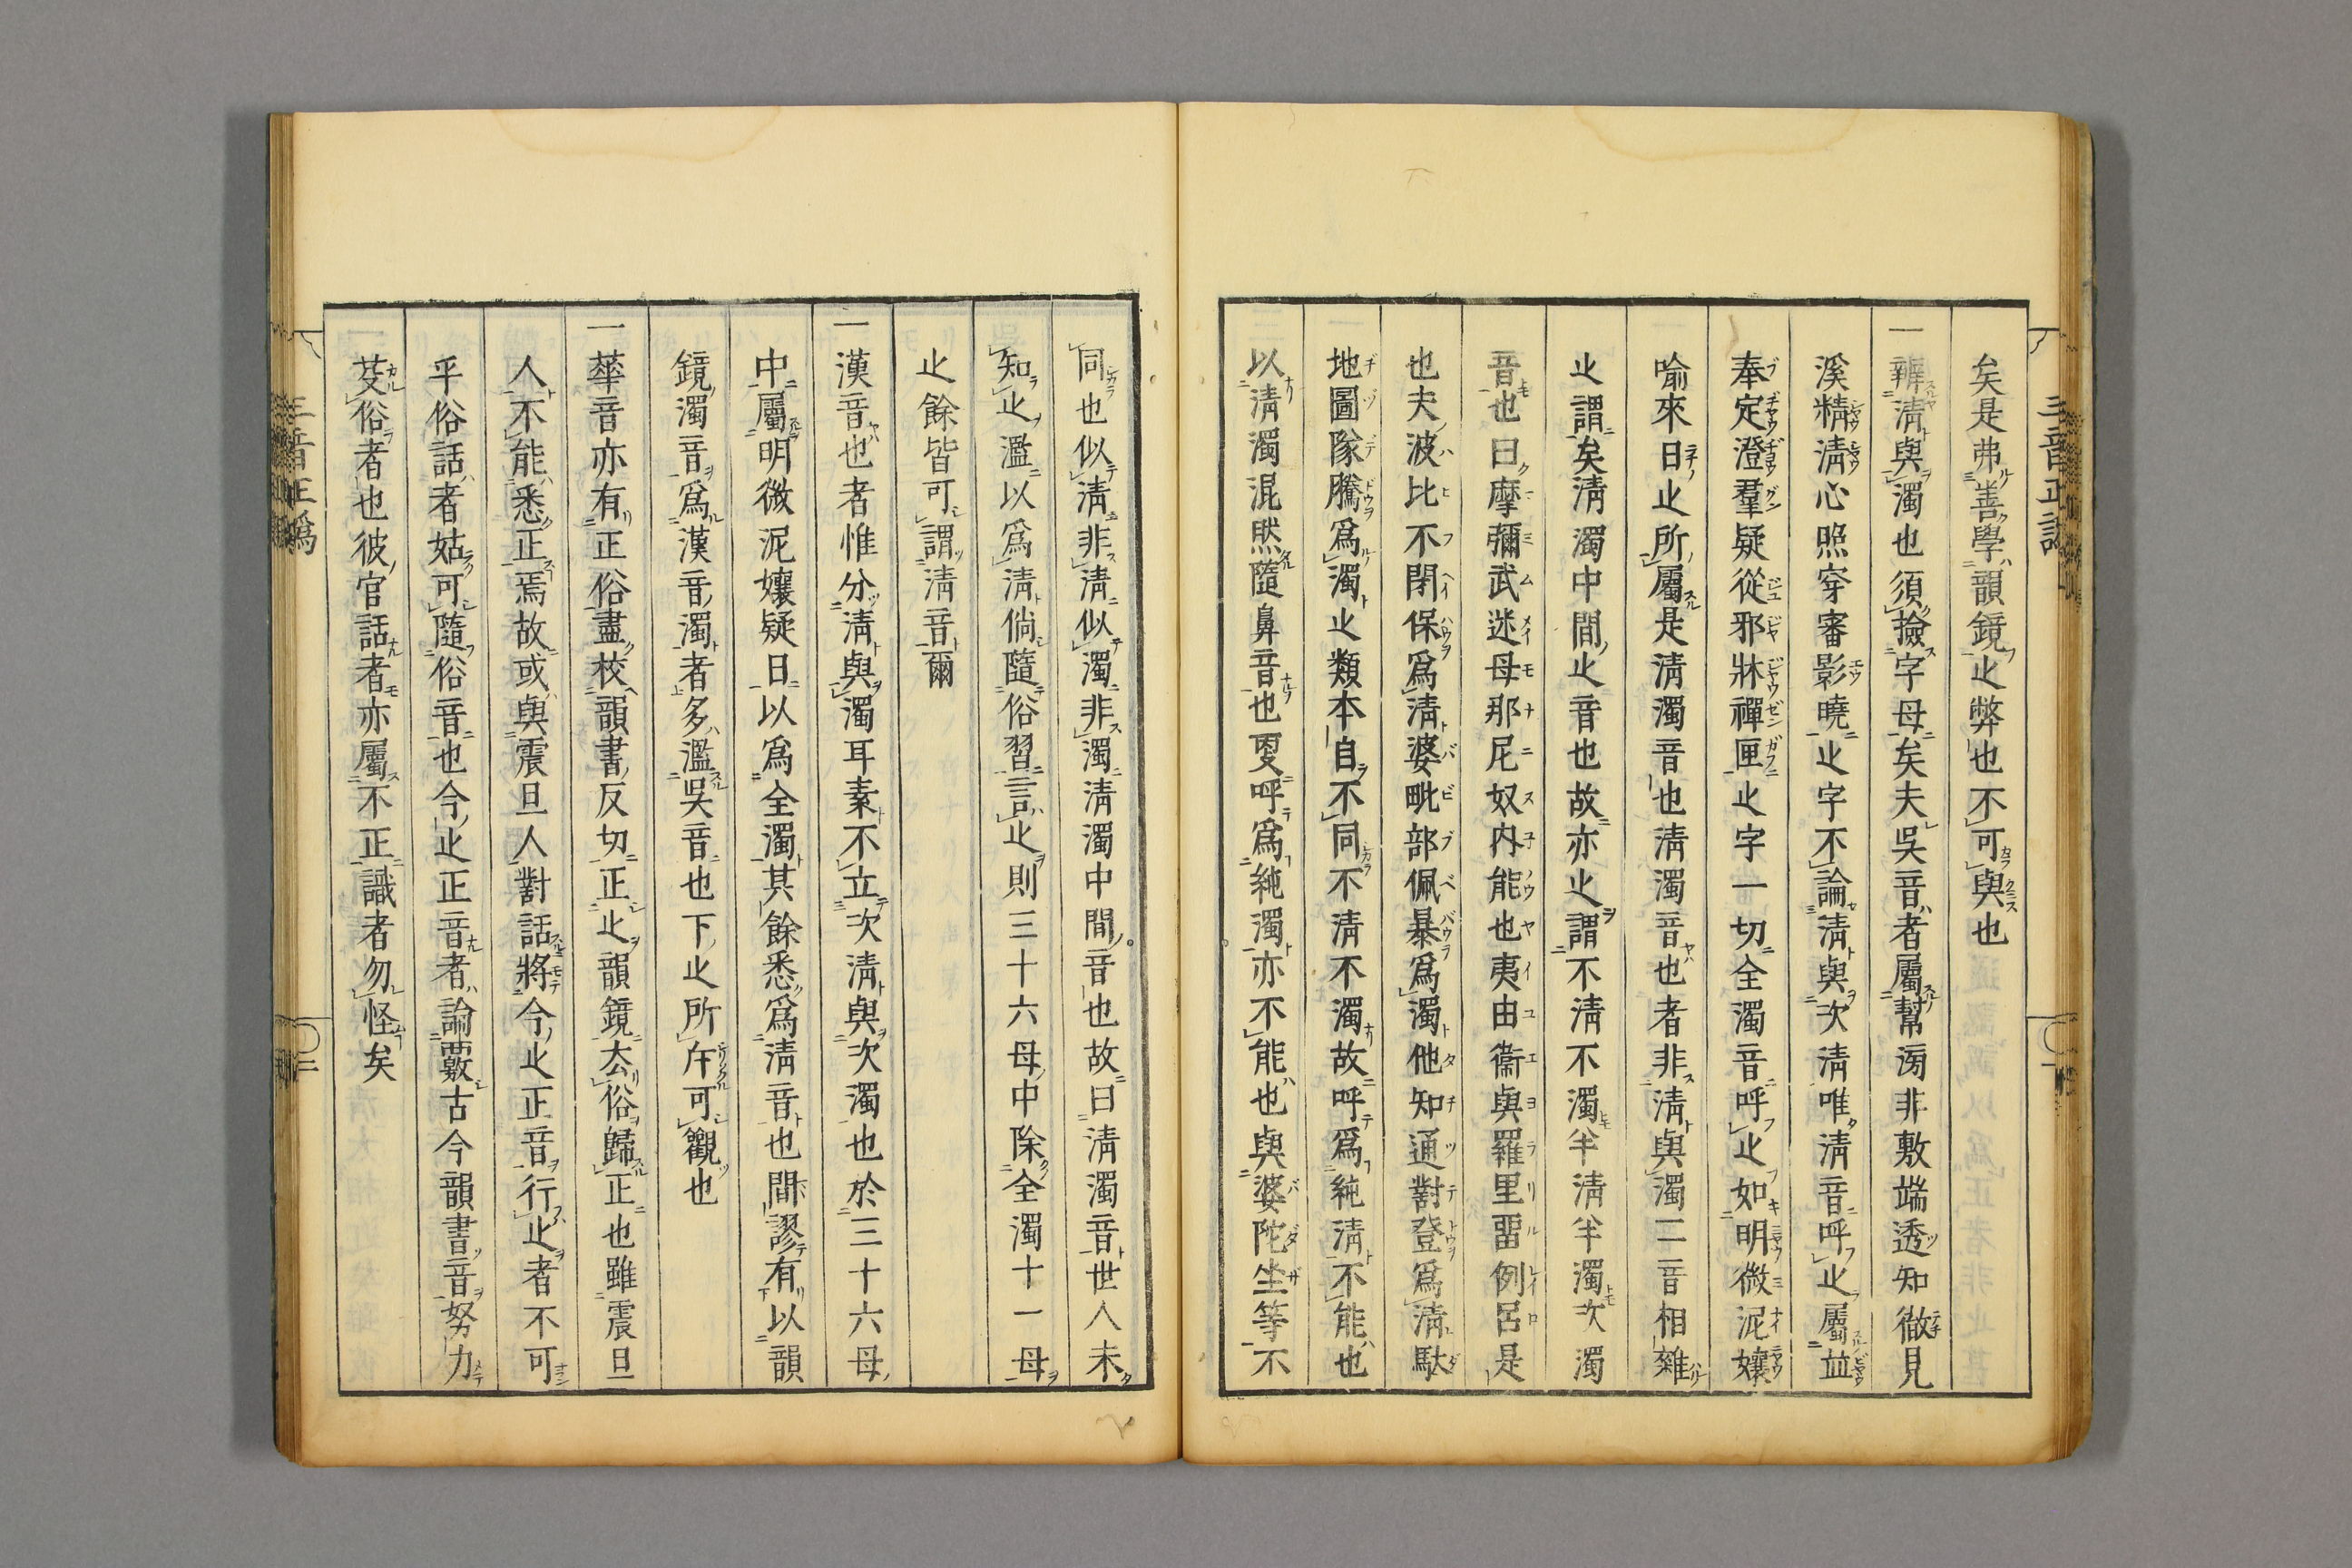 矣是弗善學韻鏡止弊也不可與也
一辨清與濁也須撿字母矣夫吳音者屬幫滂非敷端透知徹見
溪精清心照穿審影曉止字不論清與次清唯清音呼止屬並
奉定澄羣疑從邪牀禪匣止字一切全濁音呼止如明微泥孃
喻來日止所屬是清濁音也清濁音也者非清與濁二音相雜
止謂矣清濁中間止音也故亦止謂不清不濁半清半濁次濁
音也曰摩彌武迷母那尼奴內能也夷由衞與羅里畱例呂是
也夫波比不閉保爲清婆毗部佩暴爲濁他知通對登爲清馱
地圖隊騰爲濁止類本自不同不清不濁故呼爲純清不能也
以清濁混然隨鼻音也叓呼爲純濁亦不能也與婆陀坐等不
同也似清非清似濁非濁清濁中間音也故曰清濁音世人未
知止濫以爲清倘隨俗習言止則三十六母中除全濁十一母
止餘皆可謂清音爾
一漢音也者惟分清與濁耳素不立次清與次濁也於三十六母
中屬明微泥孃疑日以爲全濁其餘悉爲清音也間謬有以韻
鏡濁音爲漢音濁者多濫吳音也下止所作可觀也
一華音亦有正俗盡校韻書反切正止韻鏡厺俗歸正也雖震旦
人不能悉正焉故或與震旦人對話將今止正音行止者不可
乎俗話者姑可隨俗音也今止正音者論覈古今韻書音努力
芟俗者也彼官話者亦屬不正識者勿怪矣
三音正譌
二